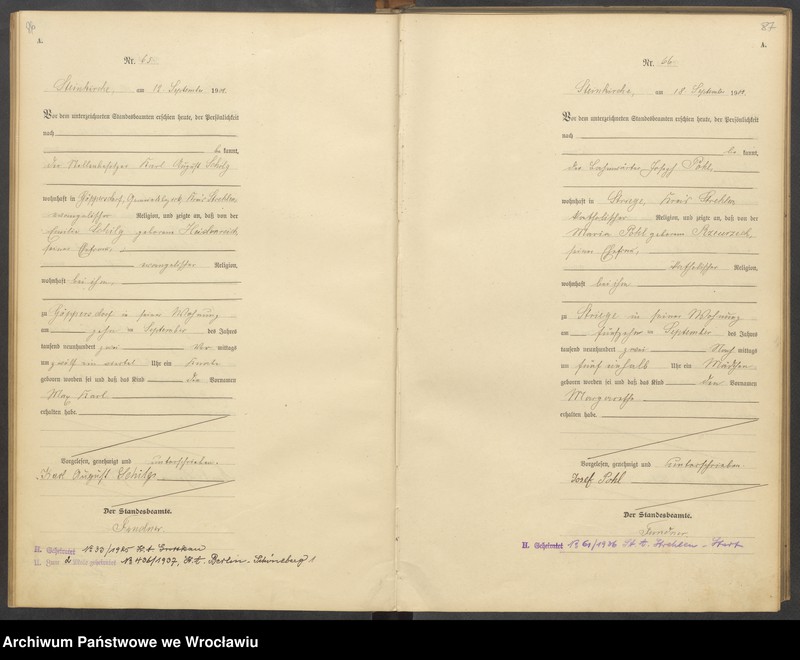 A.
Nr. 65
Steinkirche, am 12 September 19
Vor dem unterzeichneten Standesbeamten erschien heute, der Persönlichkeit
nach
be kannt,
der Stellenbesitzer Karl August
wohnhaft in Göppersdorf, Kreis Strehlen
evangelischer Religion, und zeigte an, daß von der
geborene
seiner Ehefrau,
evangelischer Religion,
wohnhaft bei ihm,
zu Göppersdorf in seiner Wohnung
am zehn ten September des Jahres
tausend neunhundert zwei Vor mittags
um zwölf ein viertel Uhr ein Knabe
geboren worden sei und daß das Kind die Vornamen
Max Karl
erhalten habe.
Vorgelesen, genehmigt und unterschrieben.
Karl August
Der Standesbeamte.
II. Geheiratet № 33/1925 St. A. Grottkau
II. Zum 2. Male geheiratet № 406/1937, St. A. Berlin-Schöneberg 1
87
A.
Nr. 66
Steinkirche, am 18 September 19
Vor dem unterzeichneten Standesbeamten erschien heute, der Persönlichkeit
nach
be kannt,
der Bahnwärter Joseph Pohl,
wohnhaft in Striege, Kreis Strehlen
katholischer Religion, und zeigte an, daß von der
Maria Pohl geborene
seiner Ehefrau,
katholischer Religion,
wohnhaft bei ihm
zu Striege in seiner Wohnung
am fünfzehn ten September des Jahres
tausend neunhundert zwei Nach mittags
um fünf einhalb Uhr ein Mädchen
geboren worden sei und daß das Kind den Vornamen
Margarethe
erhalten habe.
Vorgelesen, genehmigt und unterschrieben
Josef Pohl
Der Standesbeamte.
II. Geheiratet № 61/1926 St. A. Strehlen - Stadt
Archiwum Państwowe we Wrocławiu